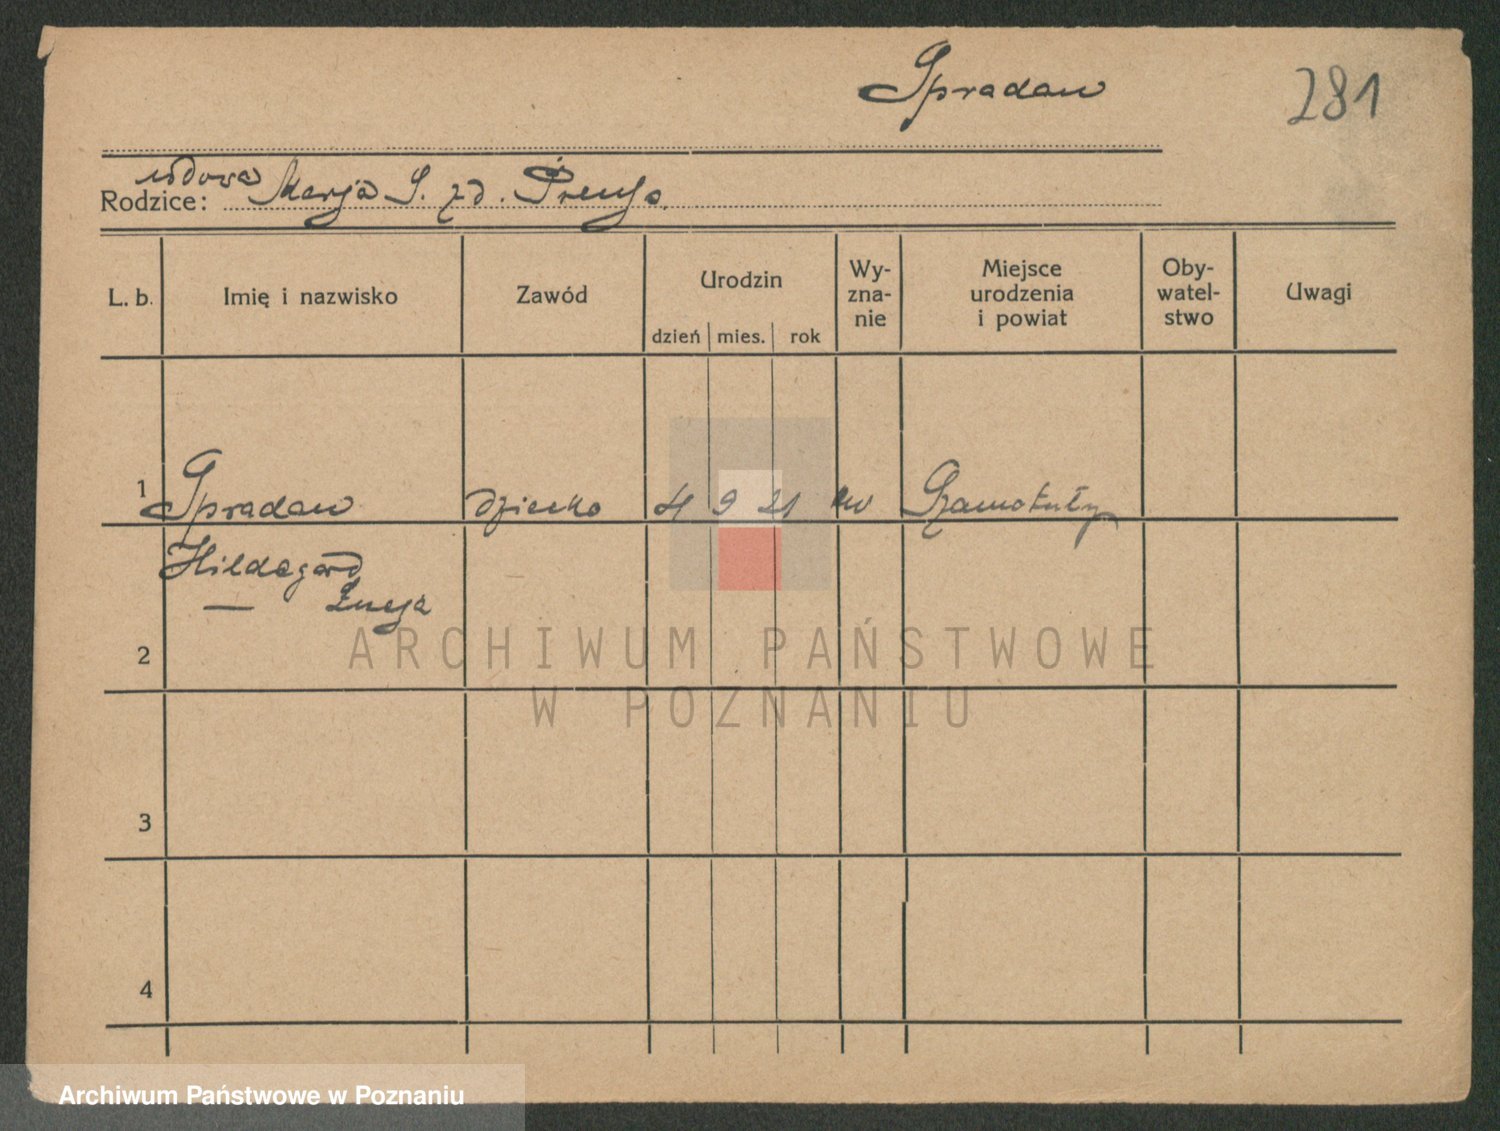 Spradau
281
wdowa
Rodzice: Marja S. zd. Preuß.
L. b. Imię i nazwisko Zawód Urodzin dzień mies. rok Wy-zna-nie Miejsce urodzenia i powiat Oby-watel-stwo Uwagi
1 Spradau dziecko 4 9 21 Szamotuły
Hildegard
—
2
3
4
ARCHIWUM PAŃSTWOWE
W POZNANIU
Archiwum Państwowe w Poznaniu